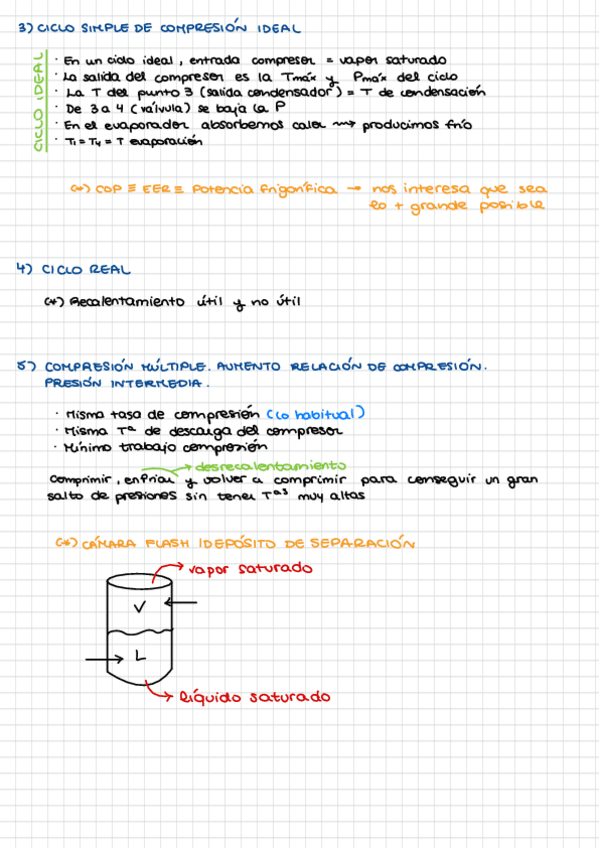 3) CICLO SIMPLE DE COMPRESIÓN IDEAL
CICLO IDEAL
· En un ciclo ideal, entrada compresor = vapor saturado
· La salida del compresor es la Tmáx y Pmáx del ciclo
· La T del punto 3 (salida condensador) = T de condensación
· De 3 a 4 (válvula) se baja la P
· En el evaporador absorbemos calor ⟿ producimos frío
· T1 = T4 = T evaporación
(*) COP ≡ EER ≡ Potencia frigorífica → nos interesa que sea
lo + grande posible
4) CICLO REAL
(*) Recalentamiento útil y no útil
5) COMPRESIÓN MÚLTIPLE. AUMENTO RELACIÓN DE COMPRESIÓN.
PRESIÓN INTERMEDIA.
· Misma tasa de compresión (lo habitual)
· Misma Tª de descarga del compresor
· Mínimo trabajo compresión
→ desrecalentamiento
Comprimir, enfriar y volver a comprimir para conseguir un gran
salto de presiones sin tener Tªs muy altas
(*) CÁMARA FLASH / DEPÓSITO DE SEPARACIÓN
vapor saturado
V
L
líquido saturado